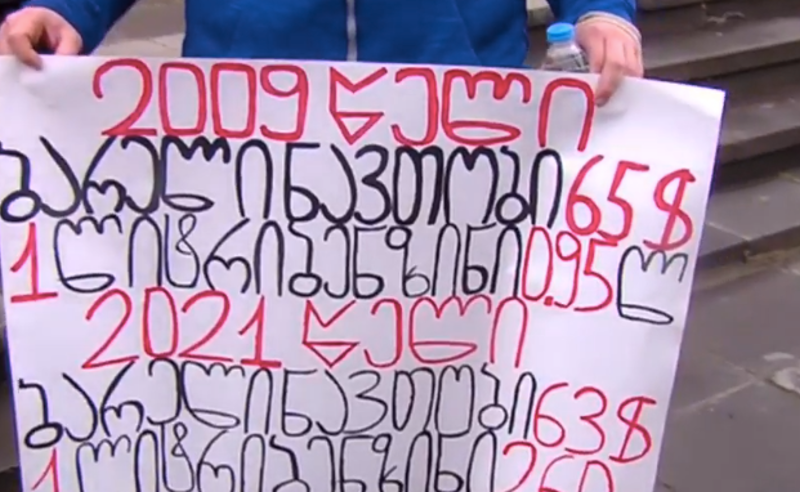 2009 წელი
ბარელი ნავთობი 65$
1 ლიტრი ბენზინი 0.95 ლ
2021 წელი
ბარელი ნავთობი 63$
1 ლიტრი ბენზინი